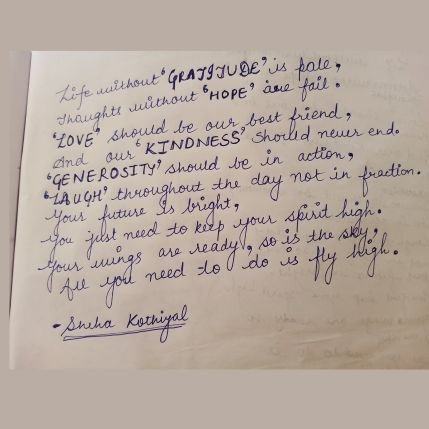 Life without 'GRATITUDE' is pale,
Thoughts without 'HOPE' are fail.
'LOVE' should be our best friend,
And our 'KINDNESS' should never end.
'GENEROSITY' should be in action,
'LAUGH' throughout the day not in fraction.
Your future is bright,
You just need to keep your spirit high.
Your wings are ready, so is the sky,
All you need to do is fly high.
- Sneha Kothiyal